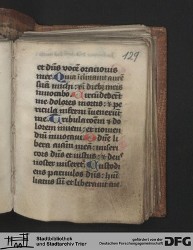 129
et dn̄s vocē orationis
mee. Quia inclinavit aurē
suā michi: et in dieb; meis
invocabo. Circūdederūt
me dolores mortis: et pe
ricula inferni invenerūt
me. Tribulationē et do
lorem inveni: et nomen
dn̄i invocavi. O dn̄e li
bera aniam meā: miseri
cors dn̄s et iustus: et deus
noster miseret. Custodi
ens parvulos dn̄s: humi
liatus sū et liberavit me.
Stadtbibliothek
und Stadtarchiv Trier
gefördert von der
Deutschen Forschungsgemeinschaft
DFG